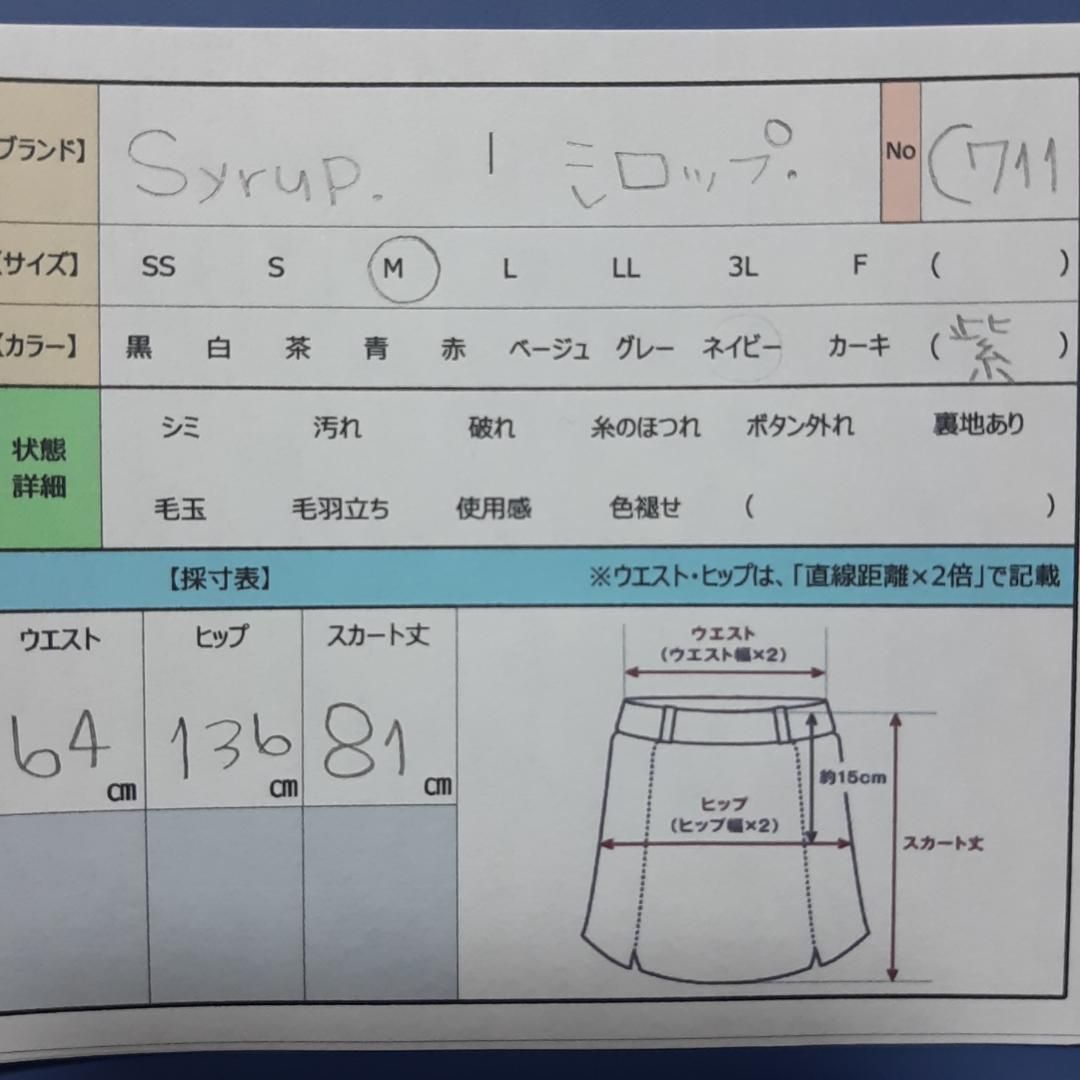 ブランド】 Syrup. | シロップ. No (711
【サイズ】 SS S M L LL 3L F ( )
【カラー】 黒 白 茶 青 赤 ベージュ グレー ネイビー カーキ (紫)
状態詳細 シミ 汚れ 破れ 糸のほつれ ボタン外れ 裏地あり
毛玉 毛羽立ち 使用感 色褪せ ( )
【採寸表】 ※ウエスト・ヒップは、「直線距離×2倍」で記載
ウエスト ヒップ スカート丈
64cm 136cm 81cm
ウエスト
(ウエスト幅×2)
約15cm
ヒップ
(ヒップ幅×2)
スカート丈